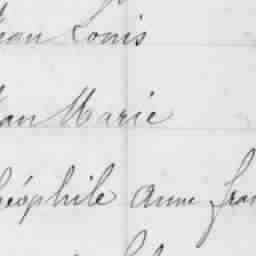 ean Louis
ean Marie
héophile Anne Fran